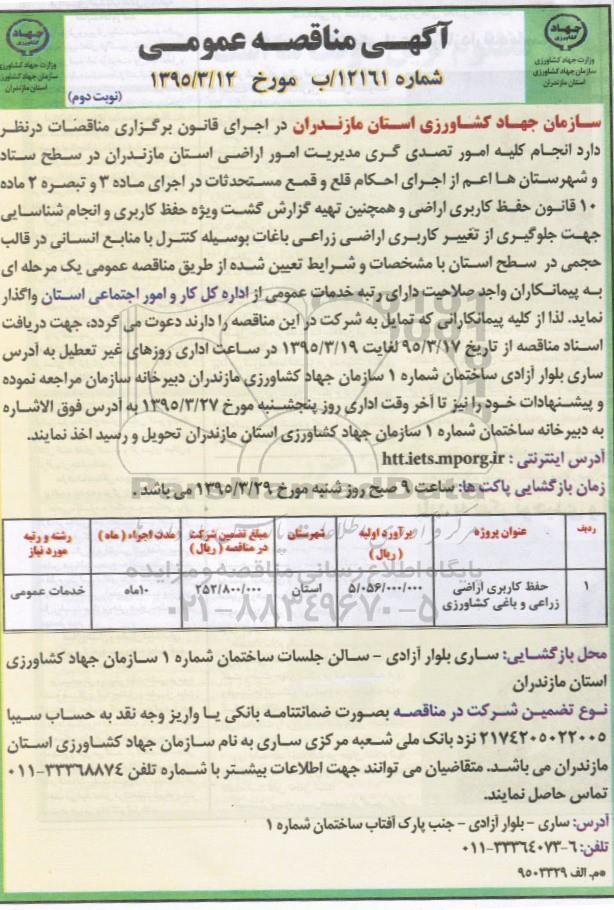 آگهی مناقصه عمومی
شماره ۱۲۱۶۱/ب مورخ ۱۳۹۵/۳/۱۲
(نوبت دوم)
جهاد کشاورزی
وزارت جهاد کشاورزی
سازمان جهاد کشاورزی
استان مازندران
جهاد کشاورزی
وزارت جهاد کشاورزی
سازمان جهاد کشاورزی
استان مازندران
سازمان جهاد کشاورزی استان مازندران در اجرای قانون برگزاری مناقصات درنظر
دارد انجام کلیه امور تصدی گری مدیریت امور اراضی استان مازندران در سطح ستاد
و شهرستان ها اعم از اجرای احکام قلع و قمع مستحدثات در اجرای ماده ۳ و تبصره ۲ ماده
۱۰ قانون حفظ کاربری اراضی و همچنین تهیه گزارش گشت ویژه حفظ کاربری و انجام شناسایی
جهت جلوگیری از تغییر کاربری اراضی زراعی باغات بوسیله کنترل با منابع انسانی در قالب
حجمی در سطح استان با مشخصات و شرایط تعیین شده از طریق مناقصه عمومی یک مرحله ای
به پیمانکاران واجد صلاحیت دارای رتبه خدمات عمومی از اداره کل کار و امور اجتماعی استان واگذار
نماید. لذا از کلیه پیمانکارانی که تمایل به شرکت در این مناقصه را دارند دعوت می گردد، جهت دریافت
اسناد مناقصه از تاریخ ۹۵/۳/۱۷ لغایت ۱۳۹۵/۳/۱۹ در ساعت اداری روزهای غیر تعطیل به آدرس
ساری بلوار آزادی ساختمان شماره ۱ سازمان جهاد کشاورزی مازندران دبیرخانه سازمان مراجعه نموده
و پیشنهادات خود را نیز تا آخر وقت اداری روز پنجشنبه مورخ ۱۳۹۵/۳/۲۷ به آدرس فوق الاشاره
به دبیرخانه ساختمان شماره ۱ سازمان جهاد کشاورزی استان مازندران تحویل و رسید اخذ نمایند.
آدرس اینترنتی : htt.iets.mporg.ir
زمان بازگشایی پاکت ها: ساعت ۹ صبح روز شنبه مورخ ۱۳۹۵/۳/۲۹ می باشد .
ردیف عنوان پروژه برآورد اولیه (ریال) شهرستان مبلغ تضمین شرکت در مناقصه (ریال) مدت اجراء (ماه) رشته و رتبه مورد نیاز
۱ حفظ کاربری اراضی زراعی و باغی کشاورزی ۵/۰۵۶/۰۰۰/۰۰۰ استان ۲۵۲/۸۰۰/۰۰۰ ۱۰ماه خدمات عمومی
پایگاه اطلاع رسانی مناقصه و مزایده
۰۲۱-۸۸۳۴۹۶۷۰-۵
محل بازگشایی: ساری بلوار آزادی - سالن جلسات ساختمان شماره ۱ سازمان جهاد کشاورزی
استان مازندران
نوع تضمین شرکت در مناقصه بصورت ضمانتنامه بانکی یا واریز وجه نقد به حساب سیبا
۲۱۷۴۲۰۵۰۲۲۰۰۵ نزد بانک ملی شعبه مرکزی ساری به نام سازمان جهاد کشاورزی استان
مازندران می باشد. متقاضیان می توانند جهت اطلاعات بیشتر با شماره تلفن ۳۳۳۶۸۸۷۴-۰۱۱
تماس حاصل نمایند.
آدرس: ساری - بلوار آزادی - جنب پارک آفتاب ساختمان شماره ۱
تلفن: ۶-۳۳۳۶۴۰۷۳-۰۱۱
م. الف ۹۵۰۳۳۲۹